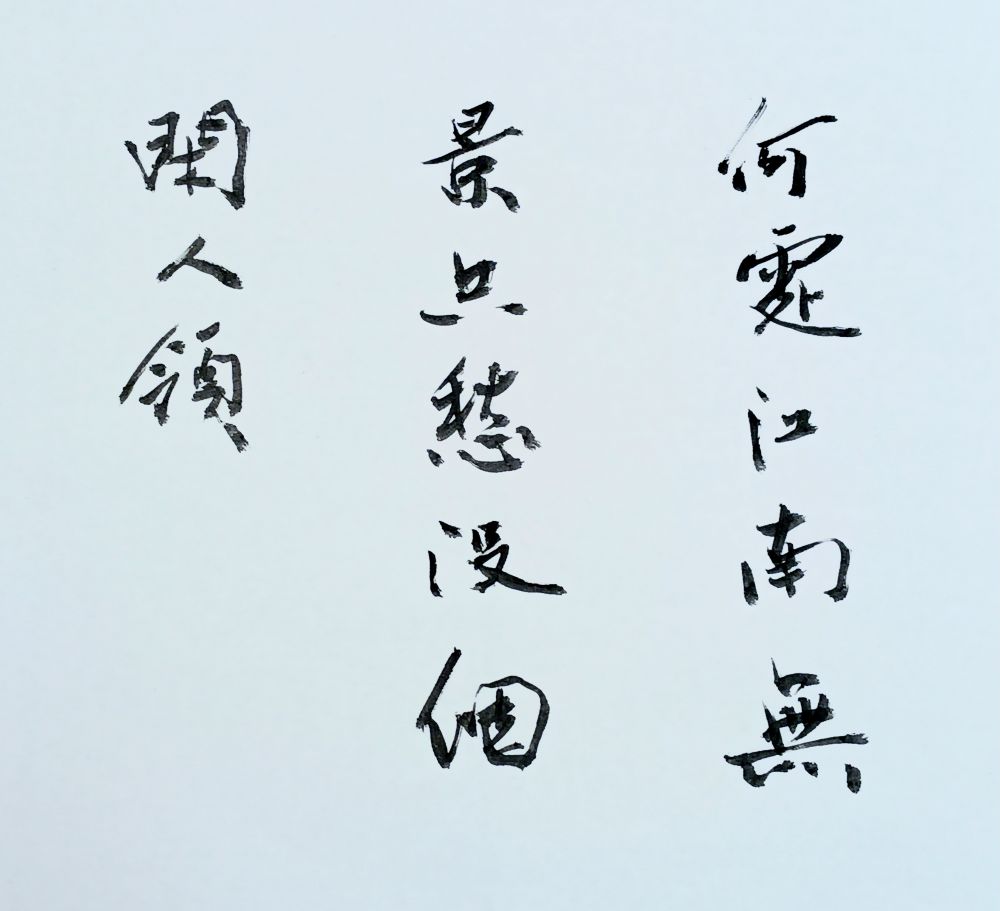 何處江南無
景只愁沒個
閑人領